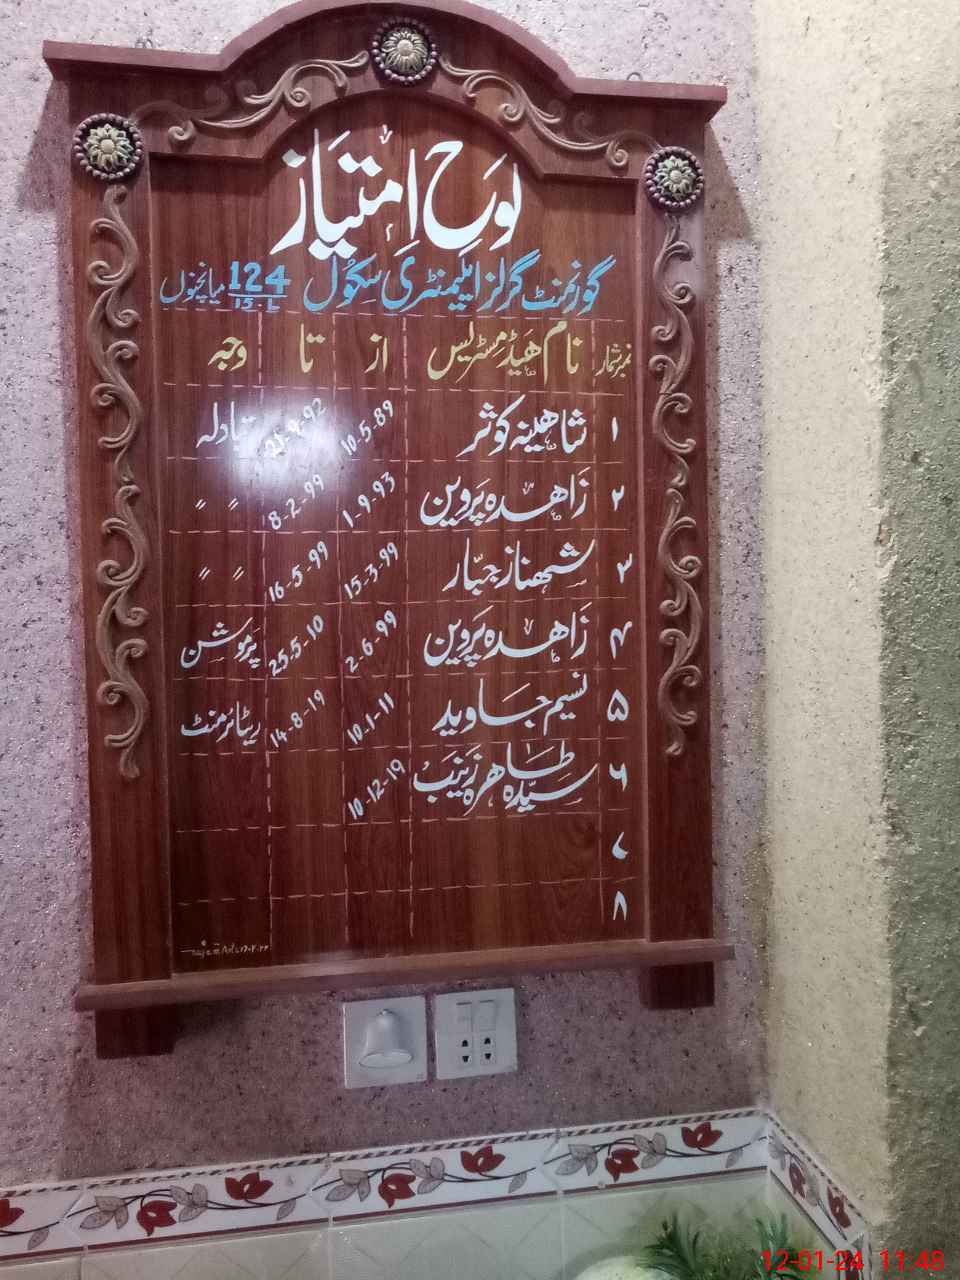 لوحِ امتیاز
گورنمنٹ گرلز ایلیمنٹری سکول 124/15-L میانچنوں
نمبرشمار نام ھیڈ مسٹریس از تا وجہ
۱ شاھینہ کوثر 10-5-89 21-9-92 تبادلہ
۲ زاھدہ پروین 1-9-93 8-2-99 〃 〃
۳ شہناز جبّار 15-3-99 16-5-99 〃 〃
۴ زاھدہ پروین 2-6-99 25-5-10 پرموشن
۵ نسیم جاوید 10-1-11 14-8-19 ریٹائرمنٹ
۶ سیّدہ طاہرہ زینب 10-12-19
۷
۸
12-01-24 11:48